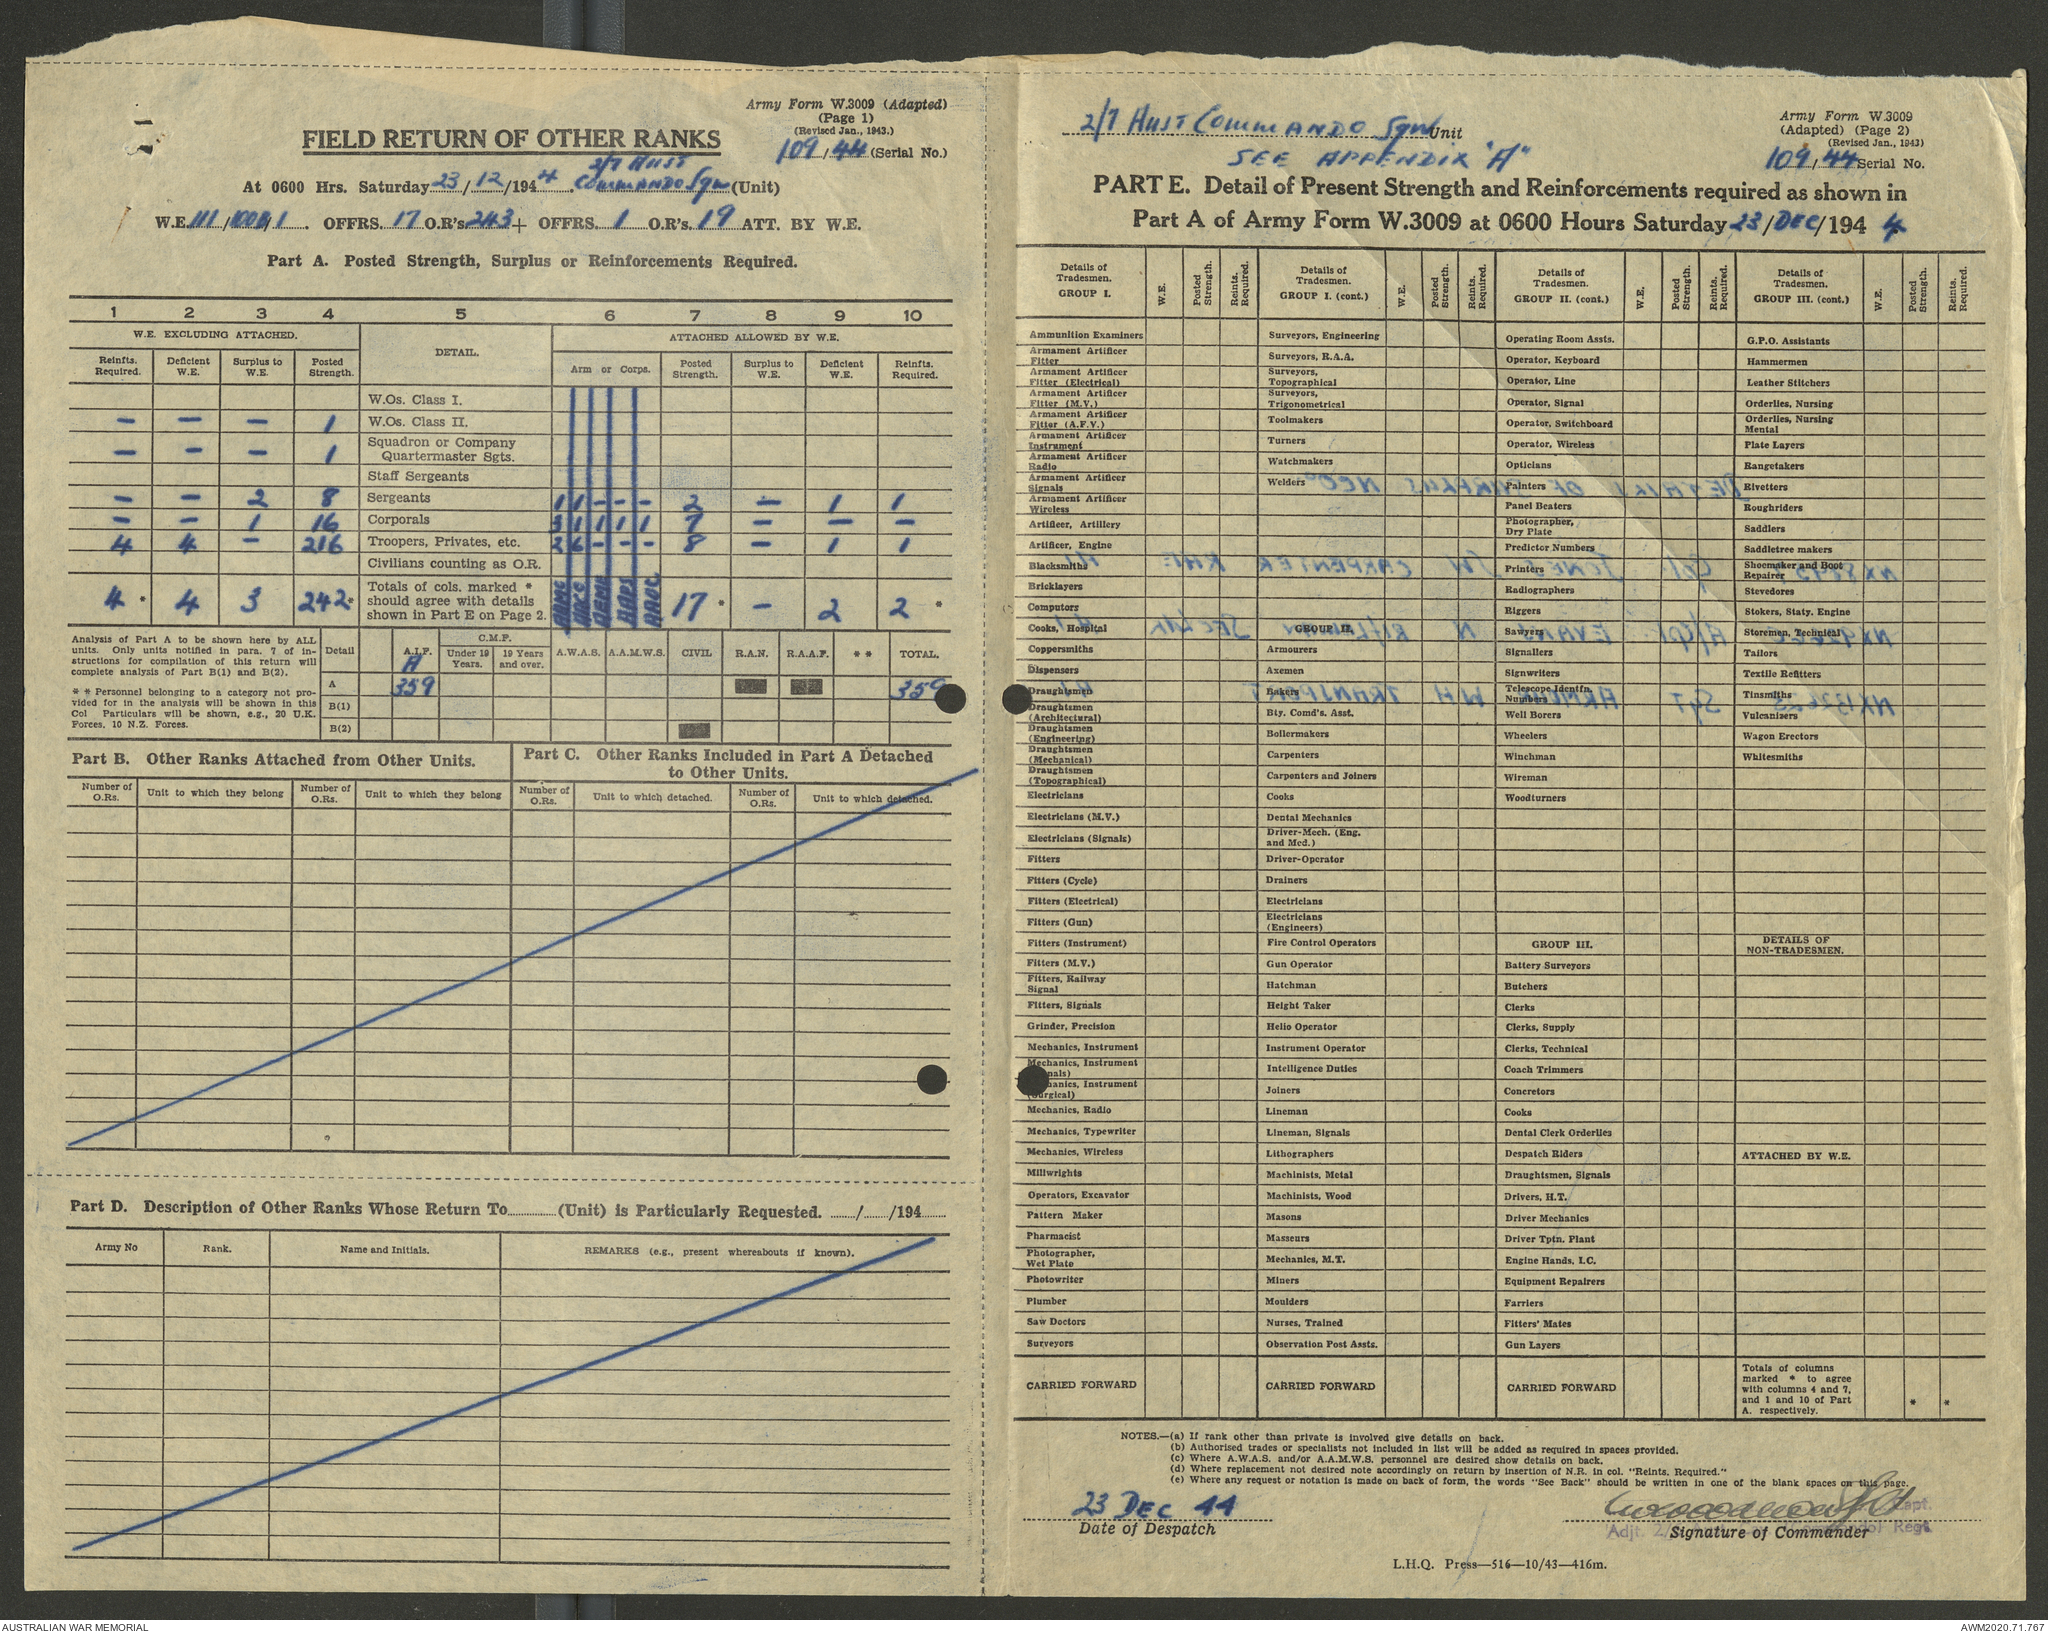 Army Form W.3009 (Adapted)
(Page 1)
(Revised Jan., 1943.)
FIELD RETURN OF OTHER RANKS
109/44 (Serial No.)
At 0600 Hrs. Saturday 23/12/1944. 2/7 Aust Commando Sqn (Unit)
W.E. 111/1001/1. OFFRS. 17 O.R's 243 + OFFRS. 1 O.R's. 19 ATT. BY W.E.
Part A. Posted Strength, Surplus or Reinforcements Required.
1 2 3 4 5 6 7 8 9 10
W.E. EXCLUDING ATTACHED. DETAIL. ATTACHED ALLOWED BY W.E.
Reinfts. Required. Deficient W.E. Surplus to W.E. Posted Strength. Arm or Corps. Posted Strength. Surplus to W.E. Deficient W.E. Reinfts. Required.
W.Os. Class I.
– – – 1 W.Os. Class II.
– – – 1 Squadron or Company Quartermaster Sgts.
Staff Sergeants
– – 2 8 Sergeants 1 1 – – – 2 – 1 1
– – 1 16 Corporals 3 1 1 1 1 7 – – –
4 4 – 216 Troopers, Privates, etc. 2 6 – – – 8 – 1 1
Civilians counting as O.R.
4 * 4 3 242 * Totals of cols. marked * should agree with details shown in Part E on Page 2. 17 * – 2 2 *
Analysis of Part A to be shown here by ALL units. Only units notified in para. 7 of instructions for compilation of this return will complete analysis of Part B(1) and B(2).
* * Personnel belonging to a category not provided for in the analysis will be shown in this Col Particulars will be shown, e.g., 20 U.K. Forces, 10 N.Z. Forces.
Detail A.I.F. C.M.F. Under 19 Years. 19 Years and over. A.W.A.S. A.A.M.W.S. CIVIL R.A.N. R.A.A.F. * * TOTAL.
A 359 359
B(1)
B(2)
Part B. Other Ranks Attached from Other Units.
Part C. Other Ranks Included in Part A Detached to Other Units.
Number of O.Rs. Unit to which they belong Number of O.Rs. Unit to which they belong Number of O.Rs. Unit to which detached. Number of O.Rs. Unit to which detached.
Part D. Description of Other Ranks Whose Return To (Unit) is Particularly Requested. / /194
Army No Rank. Name and Initials. REMARKS (e.g., present whereabouts if known).
2/7 Aust Commando Sqn Unit
SEE APPENDIX "A"
Army Form W.3009
(Adapted) (Page 2)
(Revised Jan., 1943)
109/44 Serial No.
PART E. Detail of Present Strength and Reinforcements required as shown in
Part A of Army Form W.3009 at 0600 Hours Saturday 23/DEC/1944
Details of Tradesmen. GROUP I. W.E. Posted Strength. Reints. Required.
Ammunition Examiners
Armament Artificer Fitter
Armament Artificer Fitter (Electrical)
Armament Artificer Fitter (M.V.)
Armament Artificer Fitter (A.F.V.)
Armament Artificer Instrument
Armament Artificer Radio
Armament Artificer Signals
Armament Artificer Wireless
Artificer, Artillery
Artificer, Engine
Blacksmiths
Bricklayers
Computors
Cooks, Hospital
Coppersmiths
Dispensers
Draughtsmen
Draughtsmen (Architectural)
Draughtsmen (Engineering)
Draughtsmen (Mechanical)
Draughtsmen (Topographical)
Electricians
Electricians (M.V.)
Electricians (Signals)
Fitters
Fitters (Cycle)
Fitters (Electrical)
Fitters (Gun)
Fitters (Instrument)
Fitters (M.V.)
Fitters, Railway Signal
Fitters, Signals
Grinder, Precision
Mechanics, Instrument
Mechanics, Instrument
Mechanics, Instrument (Surgical)
Mechanics, Radio
Mechanics, Typewriter
Mechanics, Wireless
Millwrights
Operators, Excavator
Pattern Maker
Pharmacist
Photographer, Wet Plate
Photowriter
Plumber
Saw Doctors
Surveyors
CARRIED FORWARD
Details of Tradesmen. GROUP I. (cont.) W.E. Posted Strength. Reints. Required.
Surveyors, Engineering
Surveyors, R.A.A.
Surveyors, Topographical
Surveyors, Trigonometrical
Toolmakers
Turners
Watchmakers
Welders
GROUP II.
Armourers
Axemen
Bakers
Bty. Comd's. Asst.
Boilermakers
Carpenters
Carpenters and Joiners
Cooks
Dental Mechanics
Driver-Mech. (Eng. and Mcd.)
Driver-Operator
Drainers
Electricians
Electricians (Engineers)
Fire Control Operators
Gun Operator
Hatchman
Height Taker
Helio Operator
Instrument Operator
Intelligence Duties
Joiners
Lineman
Lineman, Signals
Lithographers
Machinists, Metal
Machinists, Wood
Masons
Masseurs
Mechanics, M.T.
Miners
Moulders
Nurses, Trained
Observation Post Assts.
CARRIED FORWARD
Details of Tradesmen. GROUP II. (cont.) W.E. Posted Strength. Reints. Required.
Operating Room Assts.
Operator, Keyboard
Operator, Line
Operator, Signal
Operator, Switchboard
Operator, Wireless
Opticians
Painters
Panel Beaters
Photographer, Dry Plate
Predictor Numbers
Printers
Radiographers
Riggers
Sawyers
Signallers
Signwriters
Telescope Identfn. Numbers
Well Borers
Wheelers
Winchman
Wireman
Woodturners
GROUP III.
Battery Surveyors
Butchers
Clerks
Clerks, Supply
Clerks, Technical
Coach Trimmers
Concretors
Cooks
Dental Clerk Orderlies
Despatch Riders
Draughtsmen, Signals
Drivers, H.T.
Driver Mechanics
Driver Tptn. Plant
Engine Hands, I.C.
Equipment Repairers
Farriers
Fitters' Mates
Gun Layers
CARRIED FORWARD
Details of Tradesmen. GROUP III. (cont.) W.E. Posted Strength. Reints. Required.
G.P.O. Assistants
Hammermen
Leather Stitchers
Orderlies, Nursing
Orderlies, Nursing Mental
Plate Layers
Rangetakers
Rivetters
Roughriders
Saddlers
Saddletree makers
Shoemaker and Boot Repairer
Stevedores
Stokers, Staty. Engine
Storemen, Technical
Tailors
Textile Refitters
Tinsmiths
Vulcanizers
Wagon Erectors
Whitesmiths
DETAILS OF NON-TRADESMEN.
ATTACHED BY W.E.
Totals of columns marked * to agree with columns 4 and 7, and 1 and 10 of Part A. respectively. * *
NOTES.—(a) If rank other than private is involved give details on back.
(b) Authorised trades or specialists not included in list will be added as required in spaces provided.
(c) Where A.W.A.S. and/or A.A.M.W.S. personnel are desired show details on back.
(d) Where replacement not desired note accordingly on return by insertion of N.R. in col. "Reints. Required."
(e) Where any request or notation is made on back of form, the words "See Back" should be written in one of the blank spaces on this page.
23 DEC 44
Date of Despatch
Capt.
Adjt. Regt
Signature of Commander
L.H.Q. Press—516—10/43—416m.
AUSTRALIAN WAR MEMORIAL
AWM2020.71.767